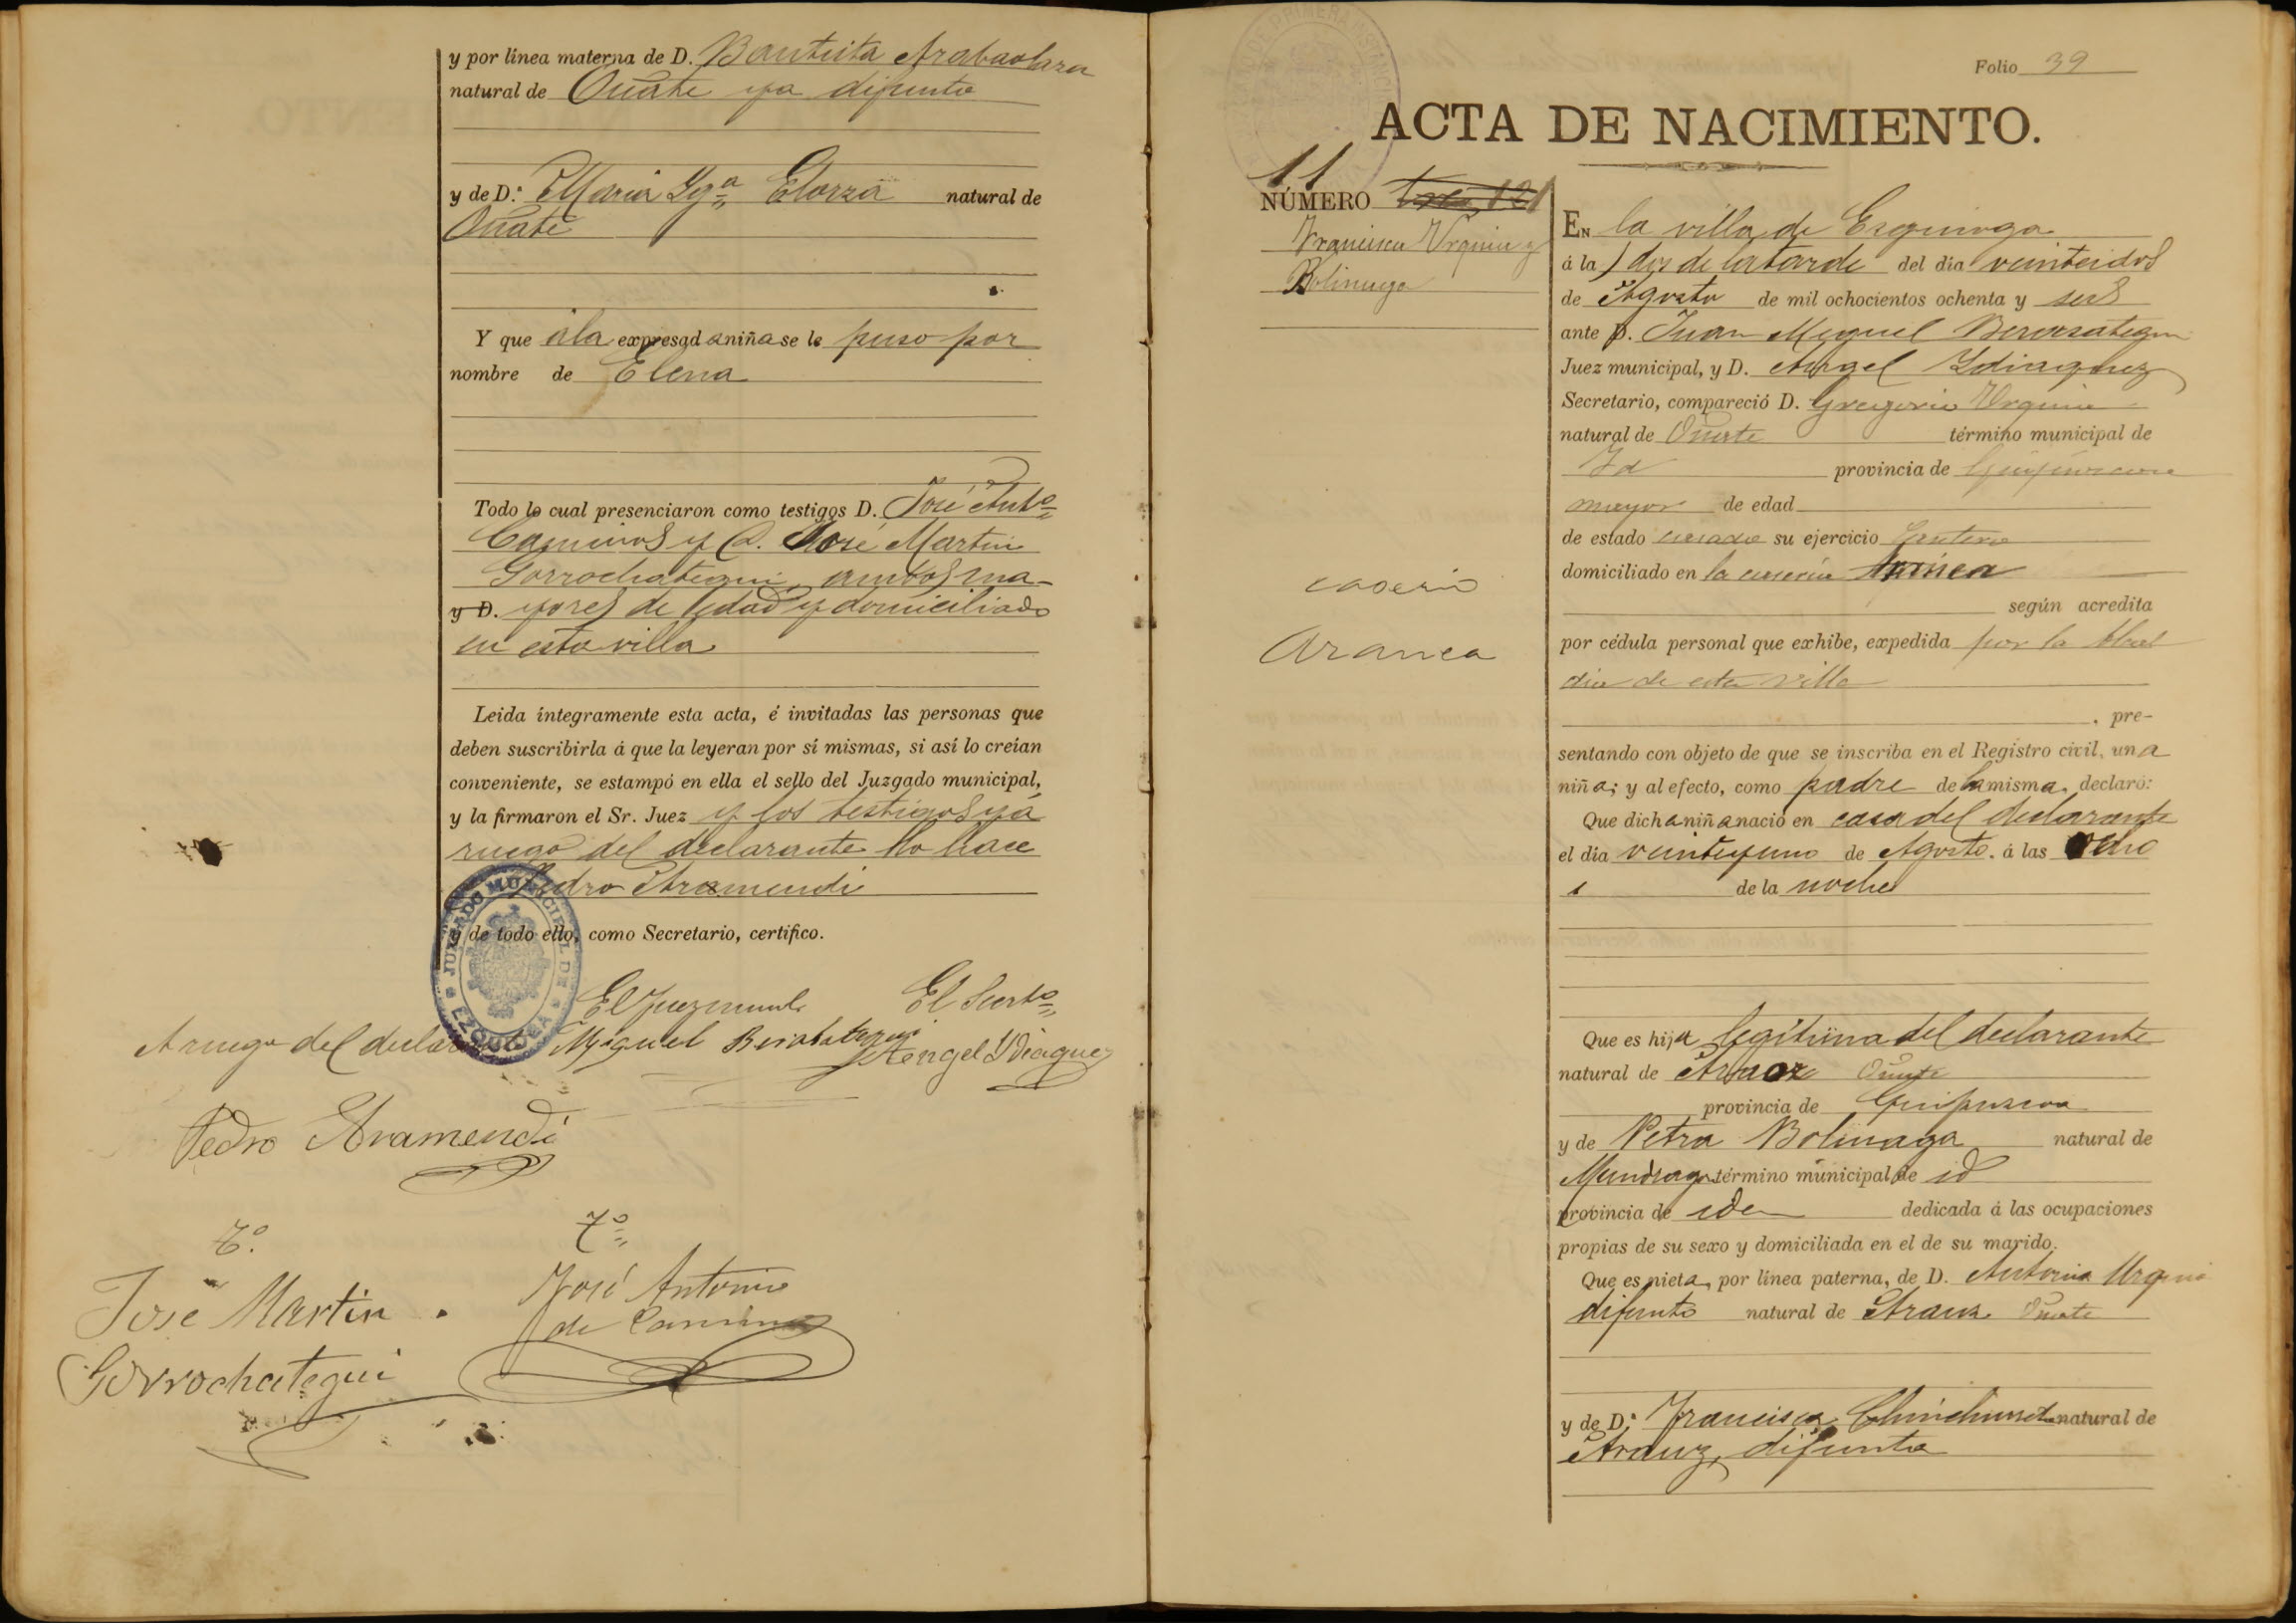 y por línea materna de D. Bautista Arabaolaza
natural de Oñate ya difunto
y de D.ª Maria Yg.ª Elorza natural de
Oñate
Y que á la expresada niña se le puso por
nombre de Elena
Todo lo cual presenciaron como testigos D. José Ant.º
Caminos y D. José Martin
Gorrochategui, ambos ma-
y D. yores de edad y domiciliado
en esta villa
Leida íntegramente esta acta, é invitadas las personas que
deben suscribirla á que la leyeran por sí mismas, si así lo creían
conveniente, se estampó en ella el sello del Juzgado municipal,
y la firmaron el Sr. Juez y los testigos y á
ruego del declarante lo hace
Pedro Aramendi
y de todo ello, como Secretario, certifico.
JUZGADO MUNICIPAL DE EZQUIOGA
El Juez munl. El Secret.º
A ruego del declarante Miguel Berasategui Angel Ydiaquez
Pedro Aramendi
T.º T.º
José Martin José Antonio
de Caminos
Gorrochategui
Folio 39
ACTA DE NACIMIENTO.
11
NÚMERO 121
Francisca Urquia y
Bolinaga
caserio
Aranea
En la villa de Ezquioga
á la s dos de la tarde del dia veintidos
de Agosto de mil ochocientos ochenta y seis
ante D. Juan Miguel Berasategui
Juez municipal, y D. Angel Ydiaquez
Secretario, compareció D. Gregorio Urquia
natural de Oñate término municipal de
Id provincia de Guipuzcoa
mayor de edad
de estado casado su ejercicio Cantero
domiciliado en la caseria Aranea
según acredita
por cédula personal que exhibe, expedida por la Alcal
dia de esta villa
, pre-
sentando con objeto de que se inscriba en el Registro civil, una
niña; y al efecto, como padre de la misma, declaró:
Que dicha niña nació en casa del declarante
el día veinteyuno de Agosto. á las ocho
de la noche
Que es hija legitima del declarante
natural de Araoz Oñate
provincia de Guipuzcoa
y de Petra Bolinaga natural de
Mondragon término municipal de id
provincia de iden dedicada á las ocupaciones
propias de su sexo y domiciliada en el de su marido.
Que es nieta, por línea paterna, de D. Antonio Urquia
difunto natural de Arauz Oñate
y de D.ª Francisca Chinchurreta natural de
Arauz, difunta